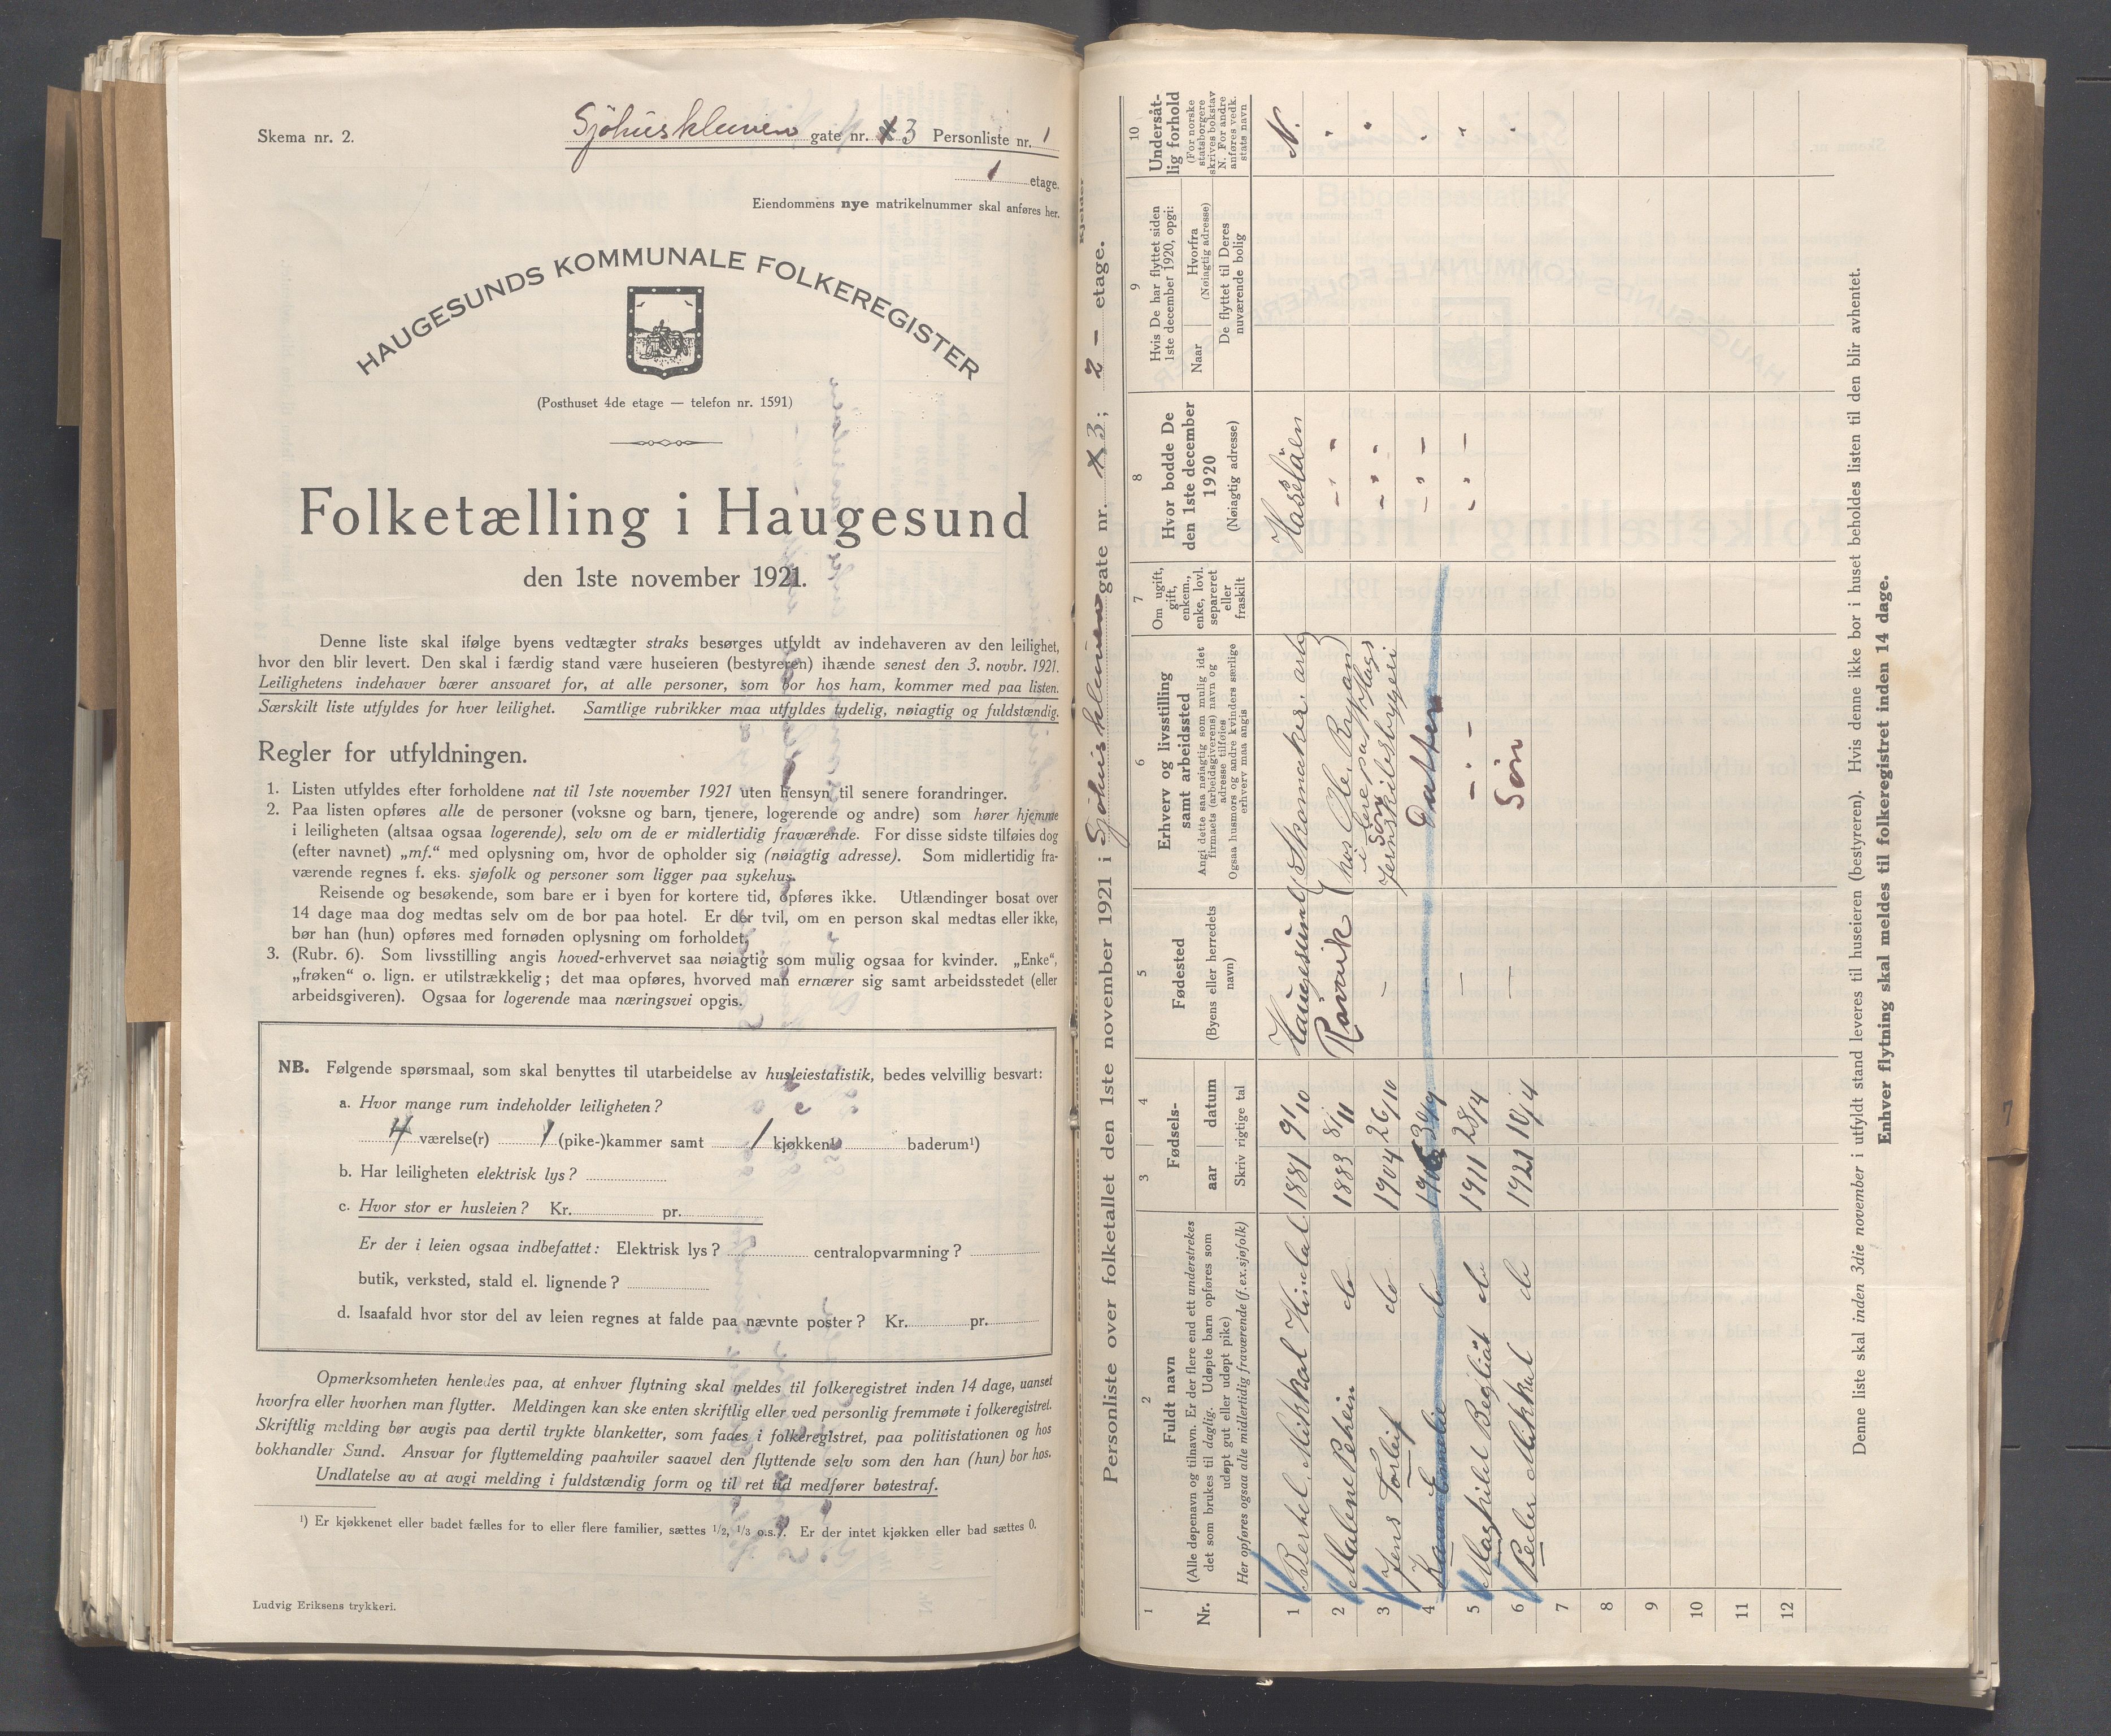 Skema nr. 2.
Sjöhuskleiven gate nr. 3 Personliste nr. 1
1 etage.
Eiendommens nye matrikelnummer skal anføres her.
HAUGESUNDS KOMMUNALE FOLKEREGISTER
(Posthuset 4de etage — telefon nr. 1591)
Folketælling i Haugesund
den 1ste november 1921.
Denne liste skal ifølge byens vedtægter straks besørges utfyldt av indehaveren av den leilighet,
hvor den blir levert. Den skal i færdig stand være huseieren (bestyreren) ihænde senest den 3. novbr. 1921.
Leilighetens indehaver bærer ansvaret for, at alle personer, som bor hos ham, kommer med paa listen.
Særskilt liste utfyldes for hver leilighet. Samtlige rubrikker maa utfyldes tydelig, nøiagtig og fuldstændig.
Regler for utfyldningen.
1. Listen utfyldes efter forholdene nat til 1ste november 1921 uten hensyn til senere forandringer.
2. Paa listen opføres alle de personer (voksne og barn, tjenere, logerende og andre) som hører hjemme
i leiligheten (altsaa ogsaa logerende), selv om de er midlertidig fraværende. For disse sidste tilføies dog
(efter navnet) „mf.“ med oplysning om, hvor de opholder sig (nøiagtig adresse). Som midlertidig fra-
værende regnes f. eks. sjøfolk og personer som ligger paa sykehus.
Reisende og besøkende, som bare er i byen for kortere tid, opføres ikke. Utlændinger bosat over
14 dage maa dog medtas selv om de bor paa hotel. Er der tvil, om en person skal medtas eller ikke,
bør han (hun) opføres med fornøden oplysning om forholdet.
3. (Rubr. 6). Som livsstilling angis hoved-erhvervet saa nøiagtig som mulig ogsaa for kvinder. „Enke“,
„frøken“ o. lign. er utilstrækkelig; det maa opføres, hvorved man ernærer sig samt arbeidsstedet (eller
arbeidsgiveren). Ogsaa for logerende maa næringsvei opgis.
NB. Følgende spørsmaal, som skal benyttes til utarbeidelse av husleiestatistik, bedes velvillig besvart:
a. Hvor mange rum indeholder leiligheten?
4 værelse(r) 1 (pike-)kammer samt 1 kjøkken baderum¹)
b. Har leiligheten elektrisk lys?
c. Hvor stor er husleien? Kr. pr.
Er der i leien ogsaa indbefattet: Elektrisk lys? centralopvarmning?
butik, verksted, stald el. lignende?
d. Isaafald hvor stor del av leien regnes at falde paa nævnte poster? Kr. pr.
Opmerksomheten henledes paa, at enhver flytning skal meldes til folkeregistret inden 14 dage, uanset
hvorfra eller hvorhen man flytter. Meldingen kan ske enten skriftlig eller ved personlig fremmøte i folkeregistret.
Skriftlig melding bør avgis paa dertil trykte blanketter, som fades i folkeregistret, paa politistationen og hos
bokhandler Sund. Ansvar for flyttemelding paahviler saavel den flyttende selv som den han (hun) bor hos.
Undlatelse av at avgi melding i fuldstændig form og til ret tid medfører bøtestraf.
¹) Er kjøkkenet eller badet fælles for to eller flere familier, sættes 1/2, 1/3 o.s.v. Er der intet kjøkken eller bad sættes 0.
Ludvig Eriksens trykkeri.
Personliste over folketallet den 1ste november 1921 i Sjöhuskleiven gate nr. 3; 2 - etage.
1 2 3 4 5 6 7 8 9 10
Nr.
Fuldt navn
(Alle døpenavn og tilnavn. Er der flere end ett understrekes
det som brukes til daglig. Udøpte barn opføres som
udøpt gut eller udøpt pike)
Her opføres ogsaa alle midlertidig fraværende (f. ex. sjøfolk)
Fødsels-
aar datum
Skriv rigtige tal
Fødested
(Byens eller herredets
navn)
Erhverv og livsstilling
samt arbeidssted
Angi dette saa nøiagtig som mulig idet
firmaets (arbeidsgiverens) navn og
adresse tilføies
Ogsaa husmors og andre kvinders særlige
erhverv maa angis
Om ugift,
gift,
enkem.,
enke, lovl.
separeret
eller
fraskilt
Hvor bodde De
den 1ste december
1920
(Nøiagtig adresse)
Hvis De har flyttet siden
1ste december 1920, opgi:
Naar
Hvorfra
(Nøiagtig adresse)
De flyttet til Deres
nuværende bolig
Undersåt-
lig forhold
(For norske
statsborgere
skrives bokstav
N. For andre
anføres vedk.
stats navn
1 Bertel Mikkal Hindal 1881 9/10 Haugesund Skomaker arb Haselåen N.
2 Malene Petrin do 1883 8/11 Rövvik (hos Ole Bryan) - " - "
3 Jens Torleif do 1904 26/10 - Sön - " - "
4 Emelie do Datter - " - "
5 Maghild Bergliot do 1911 28/4 — - " - - " - "
6 Peder Mikkal do 1921 10/4 — Sön "
7
8
9
10
11
12
Denne liste skal inden 3die november i utfyldt stand leveres til huseieren (bestyreren). Hvis denne ikke bor i huset beholdes listen til den blir avhentet.
Enhver flytning skal meldes til folkeregistret inden 14 dage.